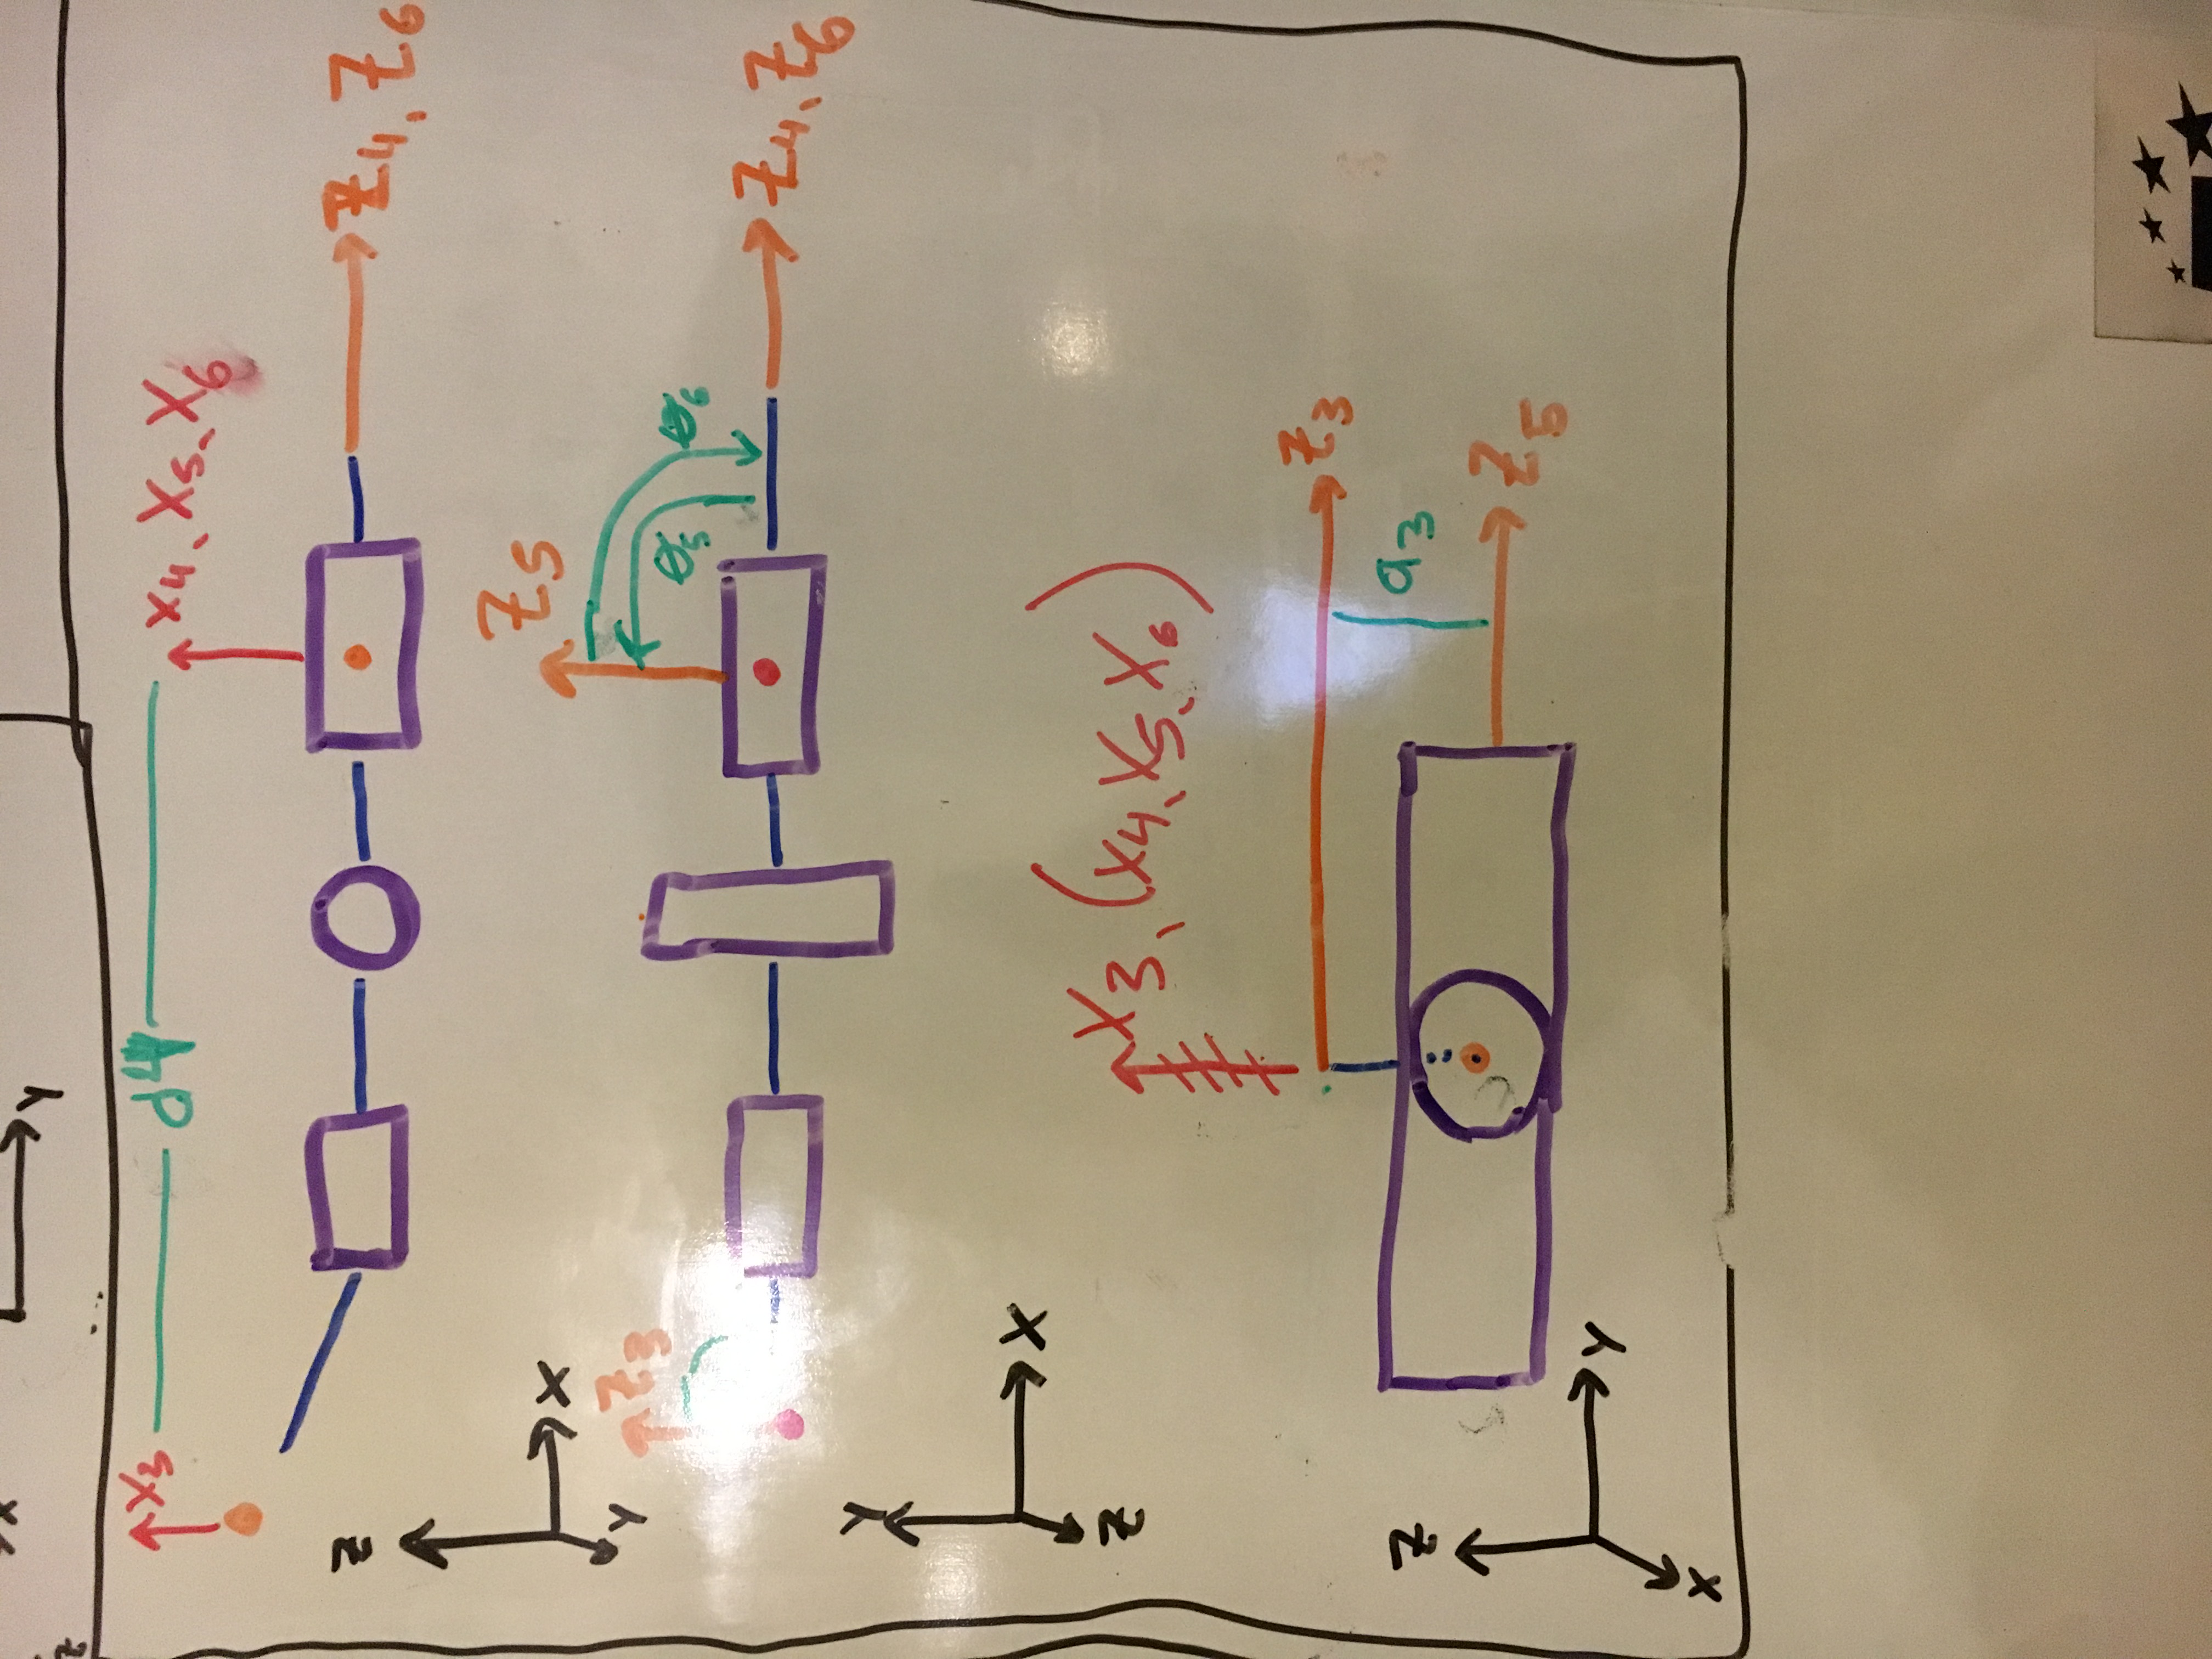 x
Y
z
X3 d4 X4, X5, X6
Z
Z4, Z6
X
Y
Z5
Z3
θ5 θ6
Z4, Z6
Y
X
Z
X3, (X4, X5, X6)
Z3
Z
a3
Z5
Y
X